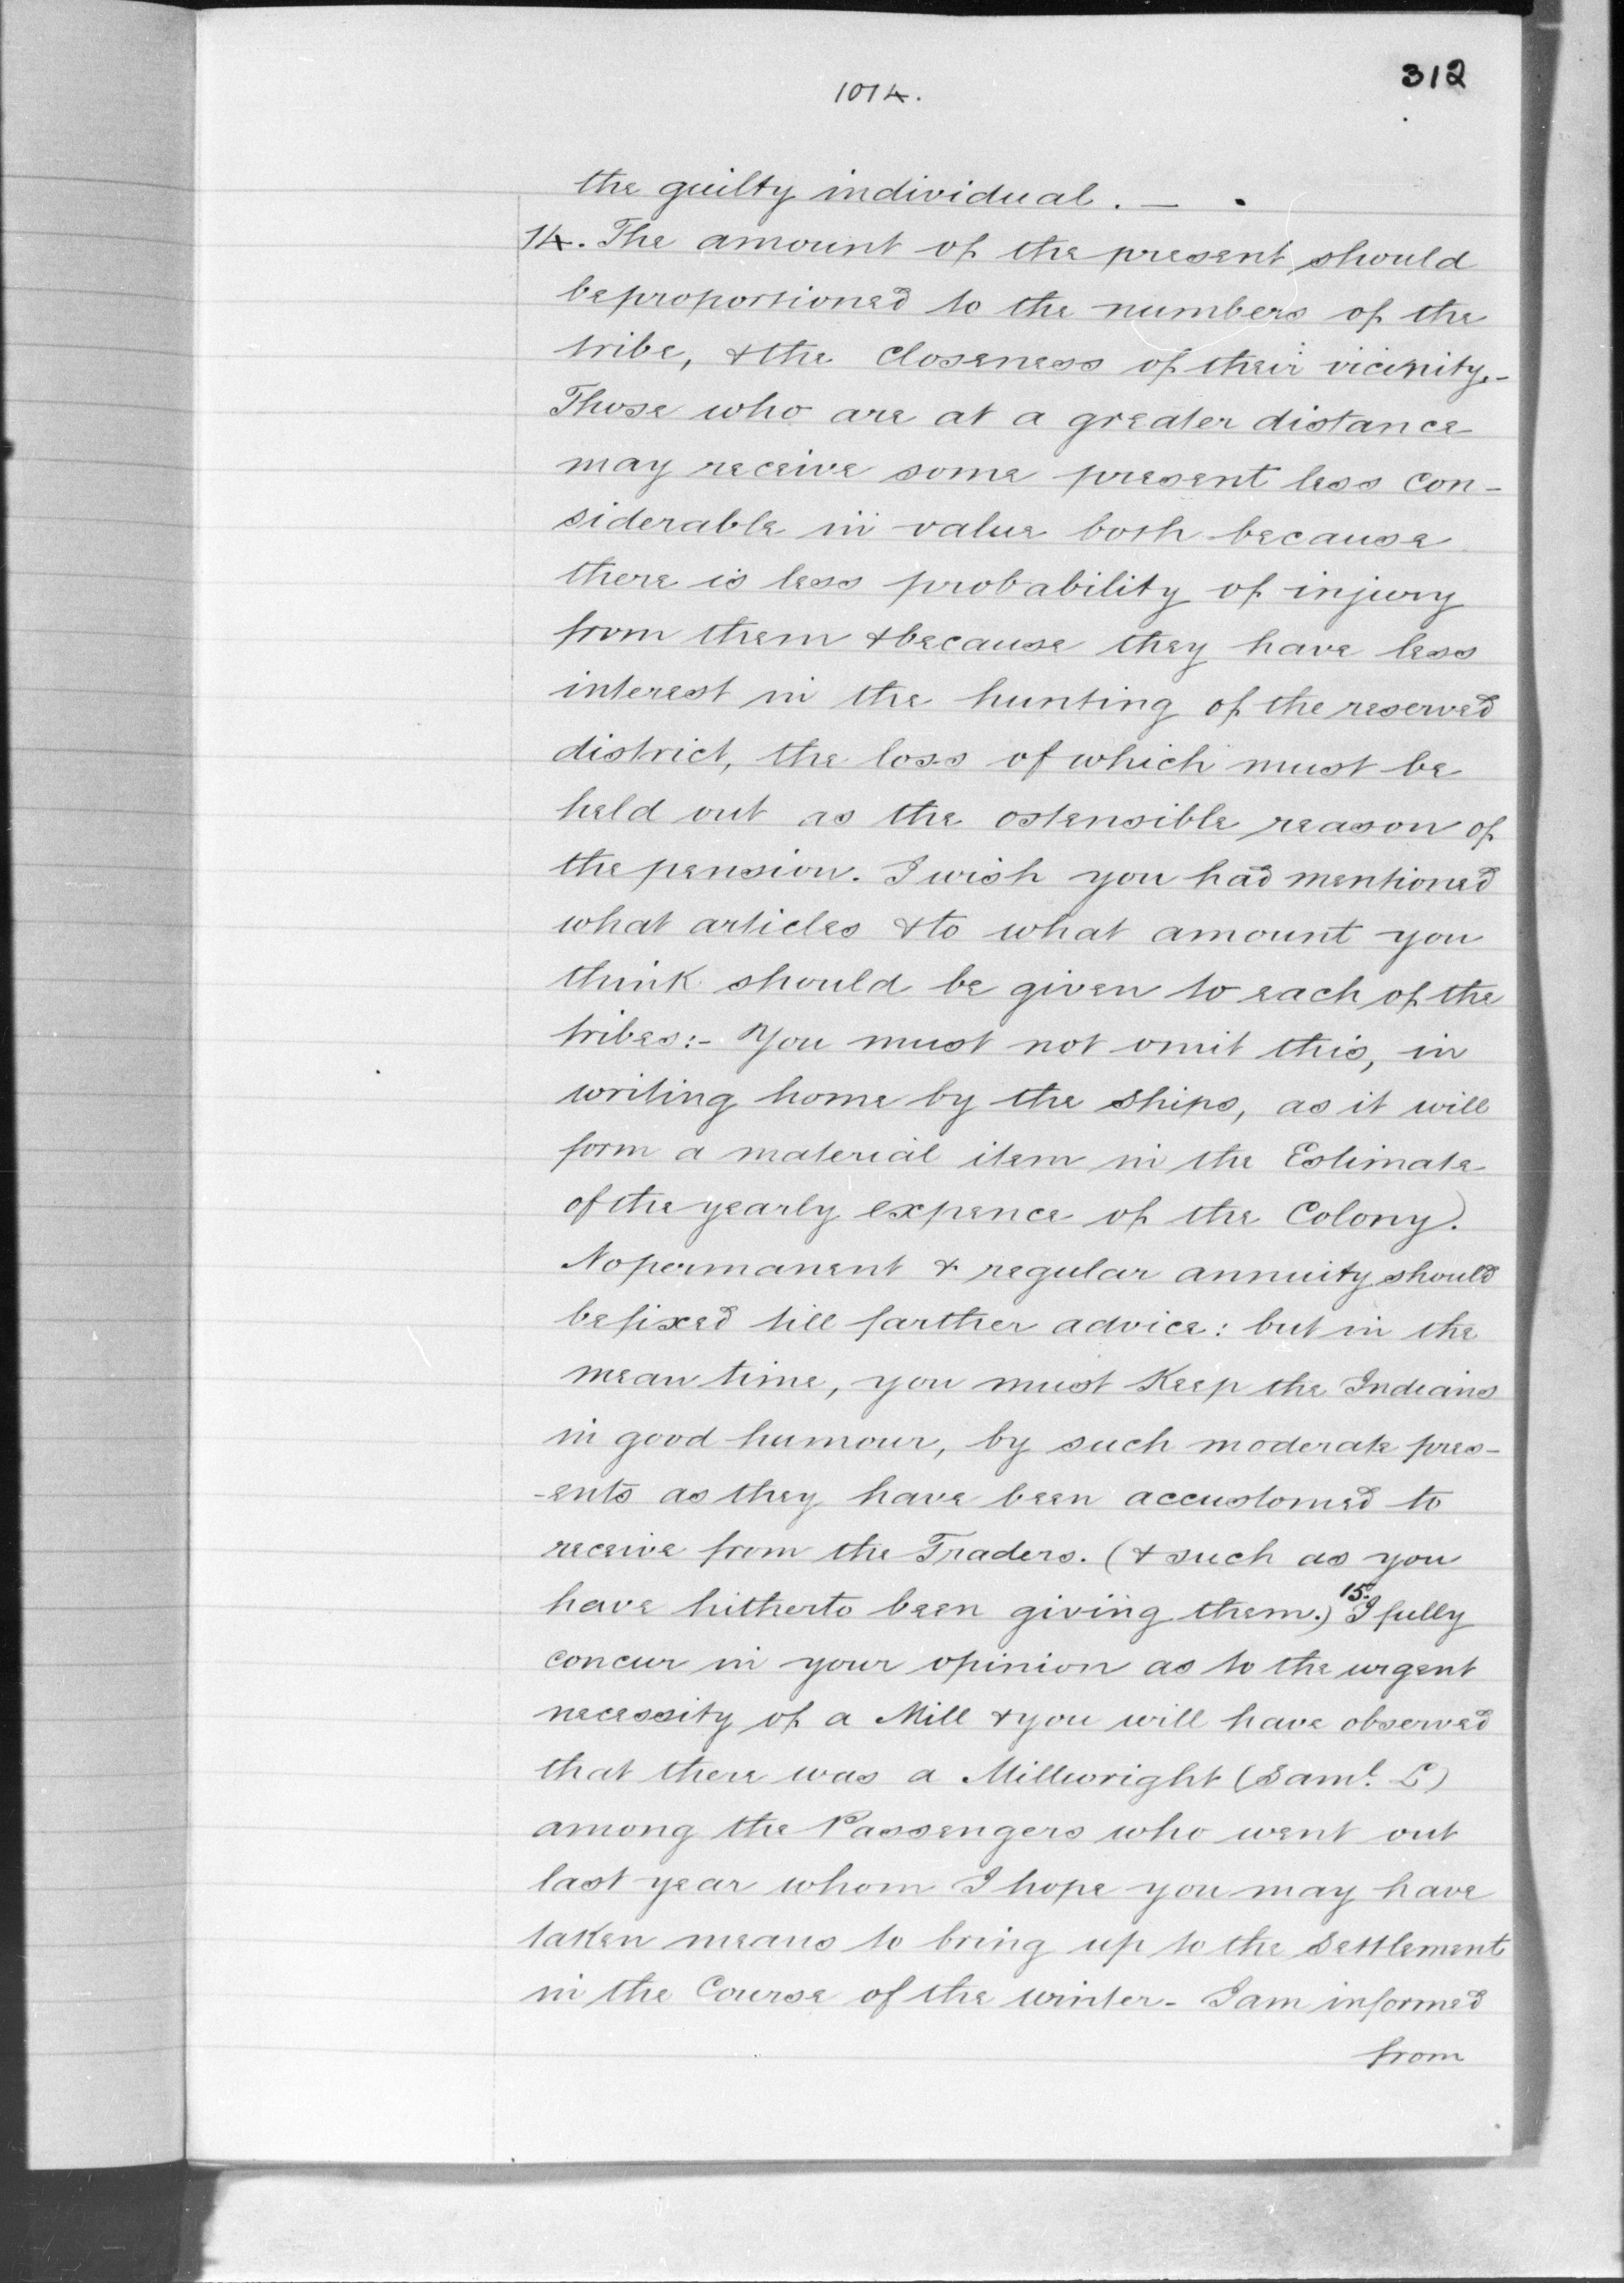 312
1014.
the guilty individual. —
14. The amount of the present should
be proportioned to the numbers of the
tribe, & the closeness of their vicinity.-
Those who are at a greater distance
may receive some present less con-
siderable in value both because
there is less probability of injury
from them & because they have less
interest in the hunting of the reserved
district, the loss of which must be
held out as the ostensible reason of
the pension. I wish you had mentioned
what articles & to what amount you
think should be given to each of the
tribes:- You must not omit this, in
writing home by the ships, as it will
form a material item in the Estimate
of the yearly expence of the Colony).
No permanent & regular annuity should
be fixed till farther advice: but in the
mean time, you must Keep the Indians
in good humour, by such moderate pres-
-ents as they have been accustomed to
receive from the Traders. (& such as you
have hitherto been giving them.) 15. I fully
concur in your opinion as to the urgent
necessity of a Mill & you will have observed
that there was a Millwright (Saml. L)
among the Passengers who went out
last year whom I hope you may have
taken means to bring up to the Settlement
in the Course of the winter- I am informed
from